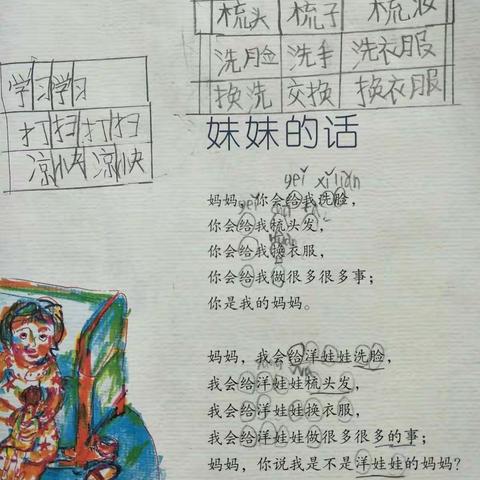 梳头 梳子 梳妆
洗脸 洗手 洗衣服
换洗 交换 换衣服
学习学习
打扫打扫
凉快凉快
妹妹的话
gěi xǐ liǎn
妈妈，你会给我洗脸，
你会给我梳头发，
你会给我换衣服，
你会给我做很多很多事；
你是我的妈妈。
妈妈，我会给洋娃娃洗脸，
我会给洋娃娃梳头发，
我会给洋娃娃换衣服，
我会给洋娃娃做很多很多的事；
妈妈，你说我是不是洋娃娃的妈妈？